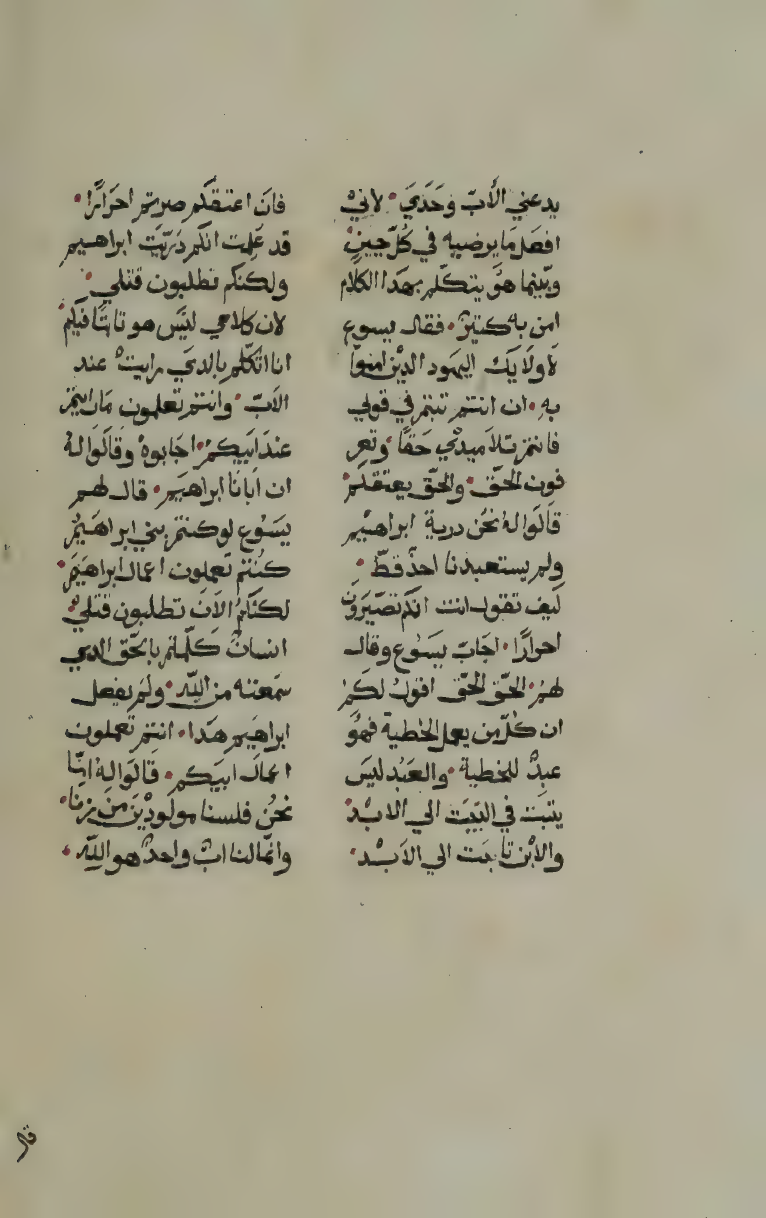 يدعني الأب وحدي لاني
افعل ما يرضيه في كل حين
وبينما هو يتكلم بهدا الكلام
امن به كتير فقال يسوع
لاولايك اليهود الدين امنوا
به ان انتم تبتم في قولي
فانتم تلاميدي حقا وتعر
فون الحق والحق يعتقكم
قالوا له نحن درية ابراهيم
ولم يستعبدنا احد قط
كيف تقول انت انكم تصيرون
احرارا اجاب يسوع وقال
لهم الحق الحق اقول لكم
ان كل من يعمل الخطية فهو
عبد للخطية والعبد ليس
يتبت في البيت الي الابد
والابن تابت الي الابد
فان اعتقكم صرتم احرارا
قد علمت انكم دريت ابراهيم
ولكنكم تطلبون قتلي
لان كلامي ليس هو تابتا فيكم
انا اتكلم بالدي رايت عند
الاب وانتم تعلمون ما رايتم
عند ابيكم اجابوه وقالوا له
ان ابانا ابراهيم قال لهم
يسوع لو كنتم بني ابراهيم
كنتم تعملون اعمال ابراهيم
لكنكم الان تطلبون قتلي
انسان كلمتكم بالحق الدي
سمعته من الله ولم يفعل
ابراهيم هدا انتم تعملون
اعمال ابيكم قالوا له اما
نحن فلسنا مولودين من زنا
وانما لنا اب واحد هو الله